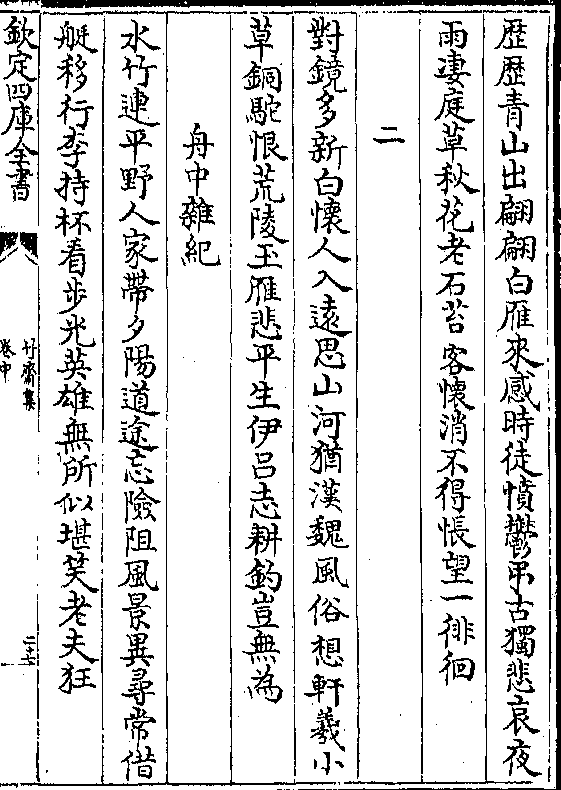 歴歴青山出翩翩白雁來感時徒憤鬱弔古獨悲哀夜
雨凄庭草秋花老石苔客懷消不得悵望一徘徊
二
對鏡多新白懷人入遠思山河猶漢魏風俗想軒羲小
草銅駝恨荒陵玉雁悲平生伊呂志耕釣豈無為
舟中雜紀
水竹連平野人家帶夕陽道途忘險阻風景異尋常借
艇移行李持杯看步光英雄無所似堪笑老夫狂
欽定四庫全書
竹齋集
卷中
二十七